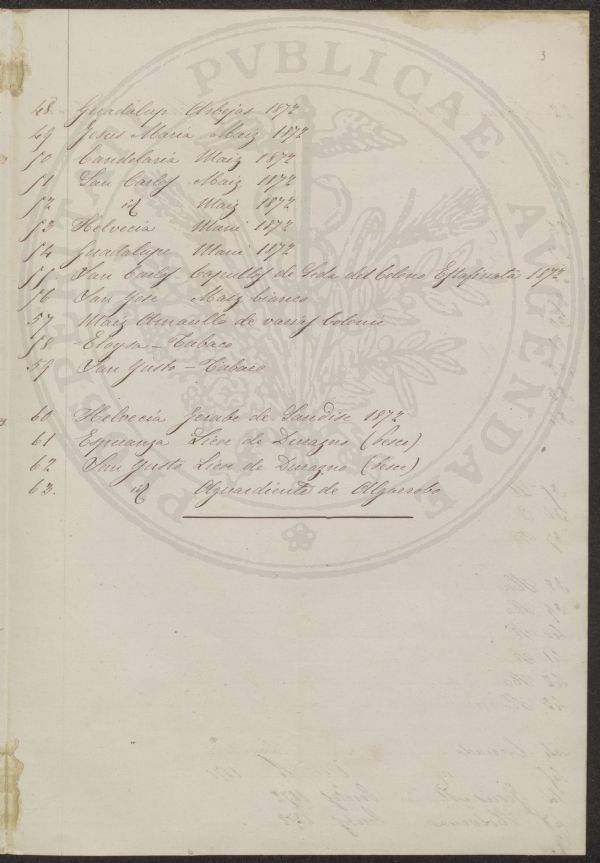 3
48. Guadalup. Arbejas 1872
49 Jesus Maria Maiz 1872
50 Candelaria Maiz 1872
51 San Carlos Maiz 1872
52 id Maiz 1872
53 Helvecia Mani 1872
54 Guadalupe Mani 1872
55 San Carlos Capullos de Seda del Colono 1872
56 San Jose Maiz blanco
57 Maiz Amarillo de varias Colonie
58 Eloysa - Tabaco
59 San Justo - Tabaco
60 Helvecia Jerabe de Sandise 1872
61 Esperanza de Durazno (seco)
62 San Justo de Durazno (seco)
63. id Aguardiente de Algarrobo
PVBLICAE AVGENDAE